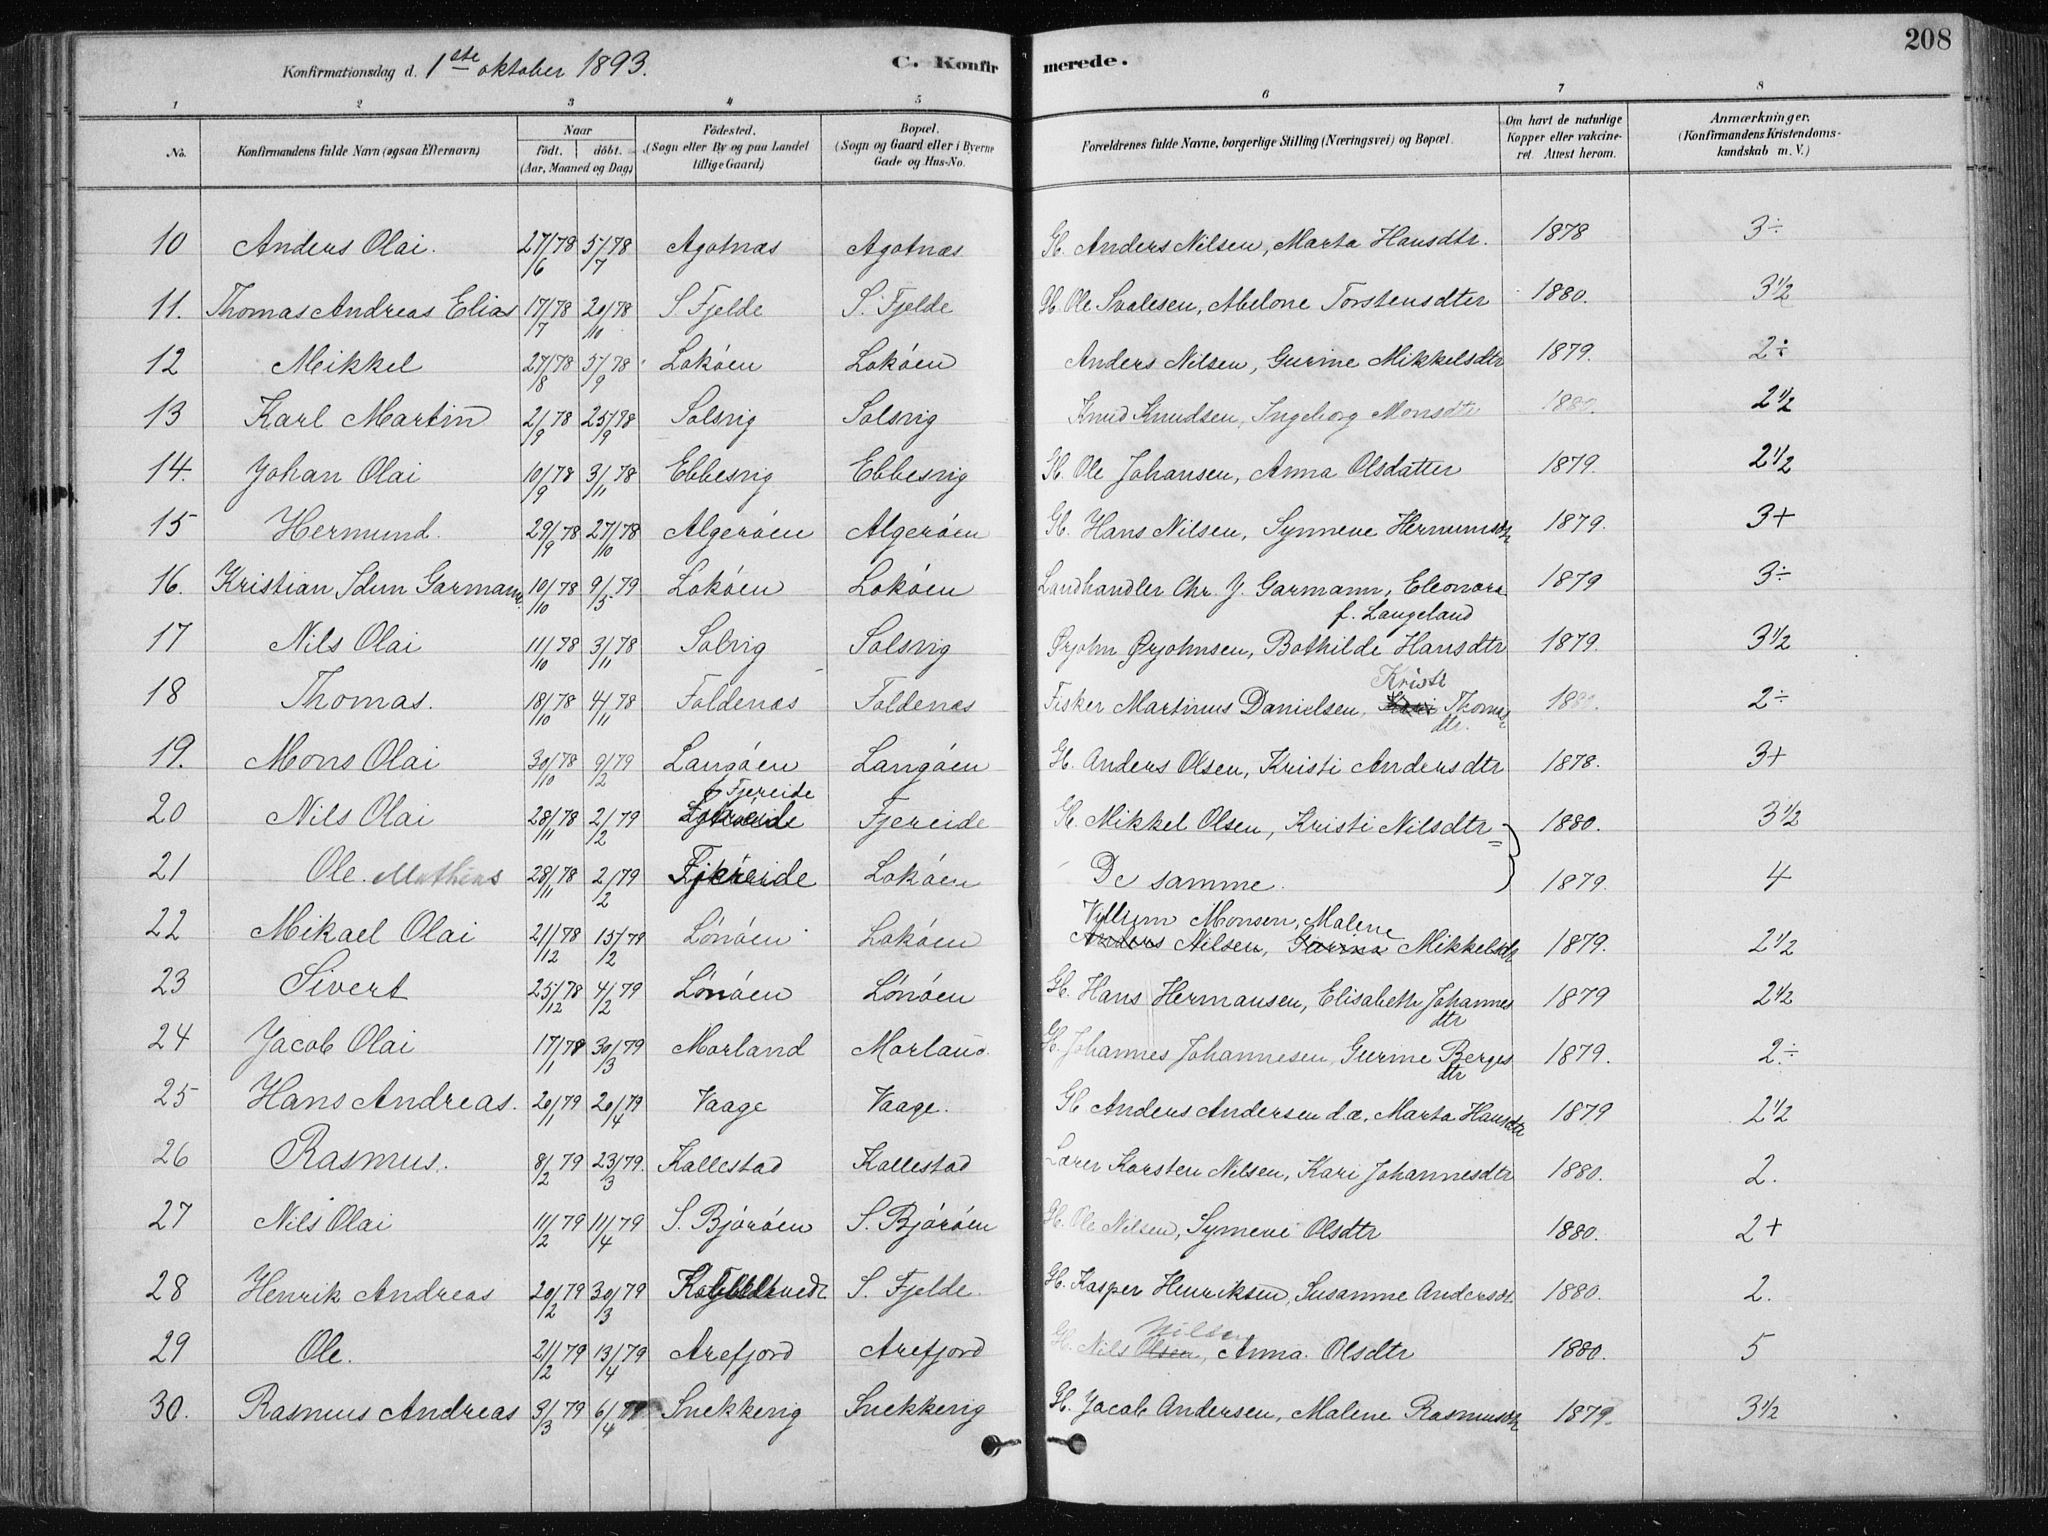 208
Konfirmationsdag d. 1ste oktober 1893.
C. Konfirmerede.
1 2 3 4 5 6 7 8
No. | Konfirmandens fulde Navn (ogsaa Efternavn) | Naar födt. döbt. (Aar, Maaned og Dag) | Födested. (Sogn eller By og paa Landet tillige Gaard) | Bopæl. (Sogn og Gaard eller i Byerne Gade og Hus-No. | Forældrenes fulde Navne, borgerlige Stilling (Næringsvei) og Bopæl. | Om havt de naturlige Kopper eller vakcineret. Attest herom. | Anmærkninger. (Konfirmandens Kristendomskundskab m. V.)
10 Anders Olai. 27/6 78 5/7 78 Agotnæs Agotnæs G. Anders Nilsen, Marta Hansdtr. 1878 3÷
11. Thomas Andreas Elias 17/7 78 20/10 78 S. Fjelde S. Fjelde G. Ole Svalesen, Abelone Torstensdtr 1880. 3½
12 Mikkel 27/8 78 5/9 78 Lokøen Lokøen Anders Nilsen, Gurine Mikkelsdtr 1879. 2÷
13 Karl Martin 2/9 78 25/9 78 Solsvig Solsvig Knud Knudsen, Ingeborg Monsdtr 1880. 2½
14. Johan Olai 10/9 78 3/11 78 Ebbesvig Ebbesvig G. Ole Johansen, Anna Olsdatter 1879. 2½
15 Hermund. 29/9 78 27/10 78 Algerøen Algerøen G. Hans Nilsen, Synneve Hermunsdtr 1879. 3+
16. Kristian Idun Garmann. 10/10 78 9/5 79 Lokøen Lokøen Landhandler Chr. J. Garmann, Eleonora f. Langeland 1879 3÷
17 Nils Olai 11/10 78 3/11 78 Solvig Solsvig Ørjohn Ørjohnsen, Bothilde Hansdtr 1879. 3½
18 Thomas. 18/10 78 4/11 78 Foldenæs Foldenæs Fisker Martinus Danielsen, Kristi Thomasdtr. 1880. 2÷
19. Mons Olai 30/10 78 9/2 79 Langøen Langøen G. Anders Olsen, Kristi Andersdtr 1878. 3+
20 Nils Olai 28/11 78 2/2 79 Fjereide Fjereide G. Mikkel Olsen, Kristi Nilsdtr 1880. 3½
21 Ole Mathias 28/11 78 2/2 79 Fjereide Lokøen De samme. 1879. 4
22 Mikael Olai 21/12 78 15/2 79 Lønøen Lokøen Villum Monsen, Malene Anders Nilsen, Gurina Mikkelsdtr 1879. 2½
23 Sivert 25/12 78 4/2 79 Lønøen Lønøen G. Hans Hermansen, Elisabeth Johannesdtr 1879 2½
24 Jacob Olai 17/1 78 30/3 79 Morland Morland. G. Johannes Johannesen, Gurine Bergesdtr 1879. 2÷
25 Hans Andreas. 20/1 79 20/4 79 Vaage Vaage. G. Anders Andersen d.æ., Marta Hansdtr 1879 2½
26 Rasmus. 8/2 79 23/3 79. Kallestad Kallestad Lærer Karsten Nilsen, Kari Johannesdtr 1880. 2.
27 Nils Olai 11/2 79 11/4 79 S. Bjørøen S. Bjørøen G. Ole Nilsen, Synnevi Olsdtr 1880. 2+
28 Henrik Andreas 20/2 79 30/3 79 S. Fjelde. G. Kasper Henriksen, Susanne Andersdtr. 1880. 2.
29 Ole. 21/2 79 13/4 79 Arefjord Arefjord G. Nils Olsen Nilsen, Anna Olsdtr 1880. 5
30. Rasmus Andreas 9/3 79 6/4 79 Snekkevig Snekkevig G. Jacob Andersen, Malene Rasmusdtr 1879. 3½